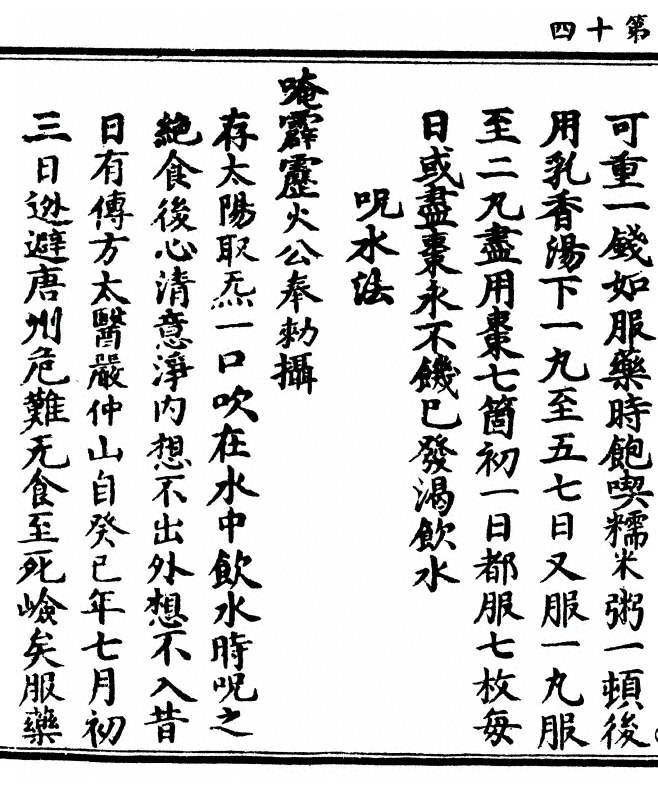 第十四
可重一錢如服藥時飽喫糯米粥一頓後
用乳香湯下一九至五七日又服一丸服
至二丸盡用棗七箇初一日都服七枚每
日或盡棗永不饑巳發渴飲水
呪水法
唵霹靂火公奉勑攝
存太陽取炁一口吹在水中飲水時呪之
絕食後心清意淨内想不出外想不入昔
日有傳方太醫嚴仲山自癸巳年七月初
三日迯避唐州危難无食至死嶮矣服藥